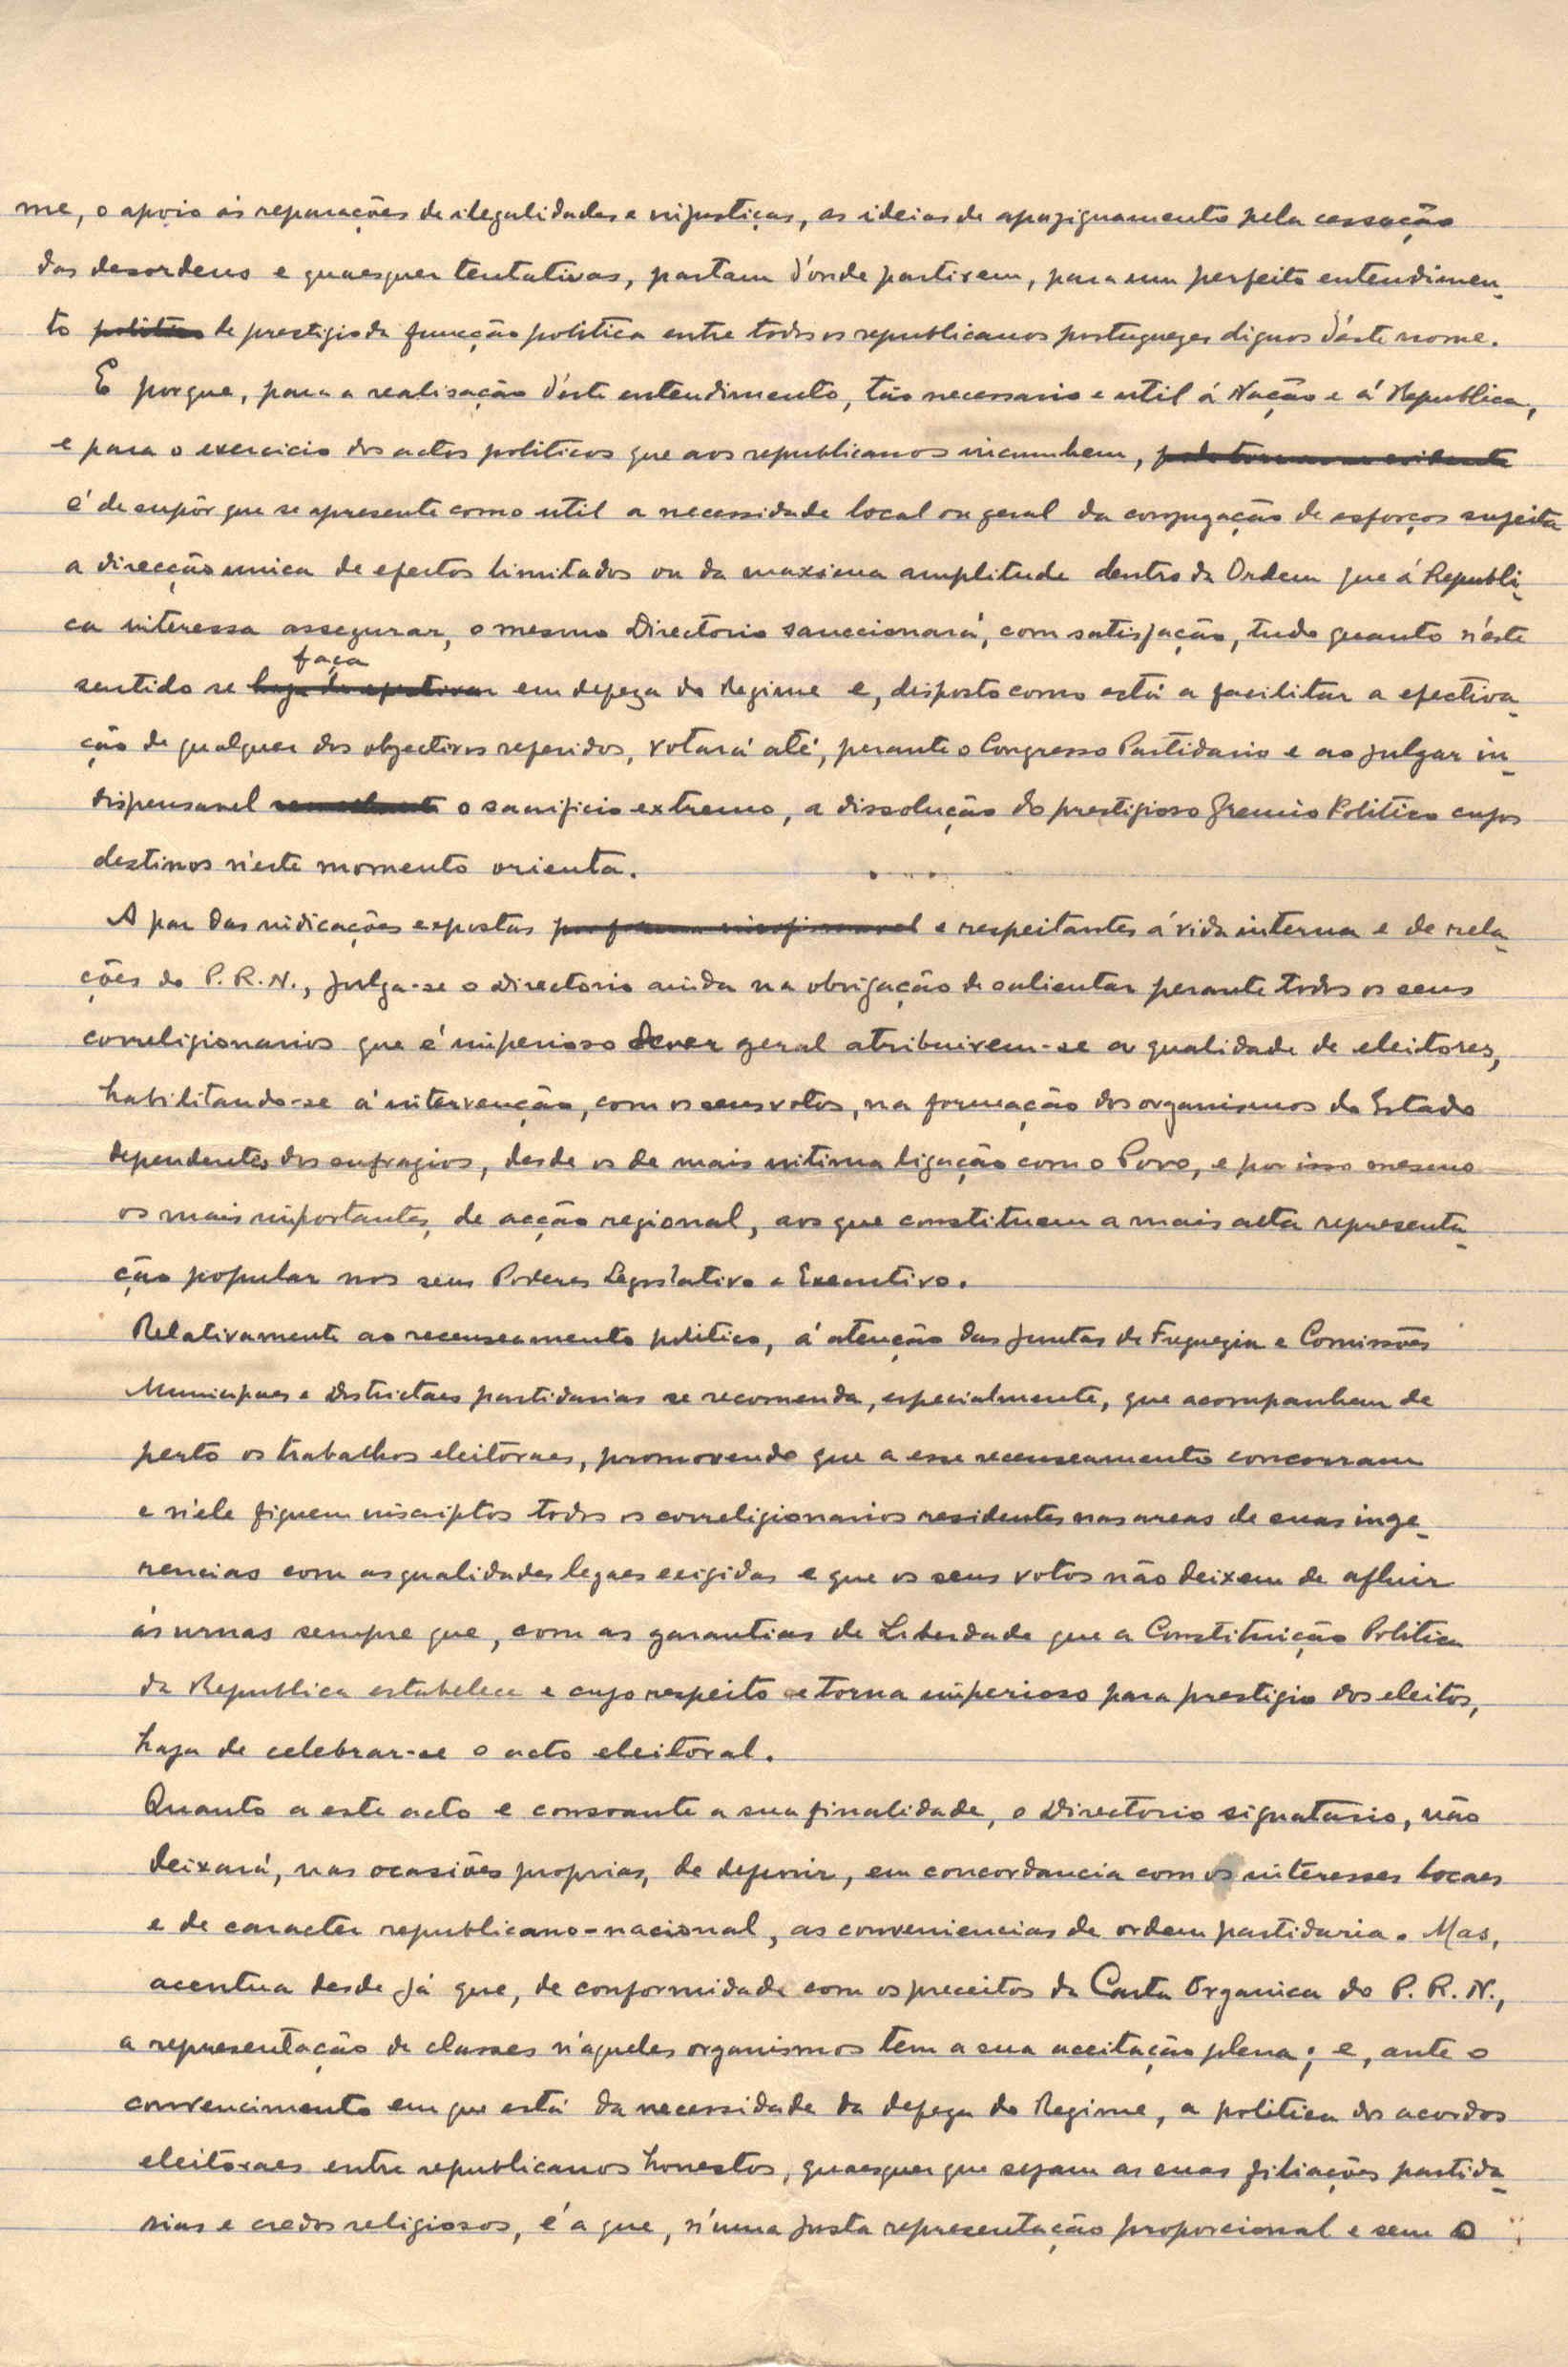 me, o apoio ás reparações de ilegalidades e injustiças, as ideias de apaziguamento pela cessação
das desordens e quaesquer tentativas, partam d'onde partirem, para um perfeito entendimen-
to politico de prestigio da funcção politica entre todos os republicanos portuguezes dignos d'êste nome.
E porque, para a realisação d'êste entendimento, tão necessario e util á Nação e á Republica,
e para o exercicio dos actos politicos que aos republicanos incumbem,
é de supôr que se apresente como util a necessidade local ou geral da conjugação de esforços sujeita
a direcção unica de efeitos limitados ou da maxima amplitude dentro da Ordem que á Republi-
ca interessa assegurar, o mesmo Directorio sanccionará, com satisfação, tudo quanto n'êste
faça
sentido se haja de efectivar em defeza do Regime e, disposto como está a facilitar a efectiva-
ção de qualquer dos objectivos referidos, votará até, perante o Congresso Partidario e ao julgar in-
dispensavel o sacrificio extremo, a dissolução do prestigioso Gremio Politico cujos
destinos n'este momento orienta.
A par das indicações expostas e respeitantes á vida interna e de rela-
ções do P. R. N., julga-se o Directorio ainda na obrigação de salientar perante todos os seus
correligionarios que é imperioso dever geral atribuirem-se a qualidade de eleitores,
habilitando-se á intervenção, com os seus votos, na formação dos organismos do Estado
dependentes dos sufragios, desde os de mais intima ligação com o Povo, e por isso mesmo
os mais importantes, de acção regional, aos que constituem a mais alta representa-
ção popular nos seus Poderes Legislativo e Executivo.
Relativamente ao recenseamento politico, á atenção das Juntas de Freguezia e Comissões
Municipaes e Districtaes partidarias se recomenda, especialmente, que acompanhem de
perto os trabalhos eleitoraes, promovendo que a esse recenseamento concorram
e n'ele fiquem inscriptos todos os correligionarios residentes nas areas de suas inge-
rencias com as qualidades legaes exigidas e que os seus votos não deixem de afluir
ás urnas sempre que, com as garantias de Liberdade que a Constituição Politica
da Republica estabelece e cujo respeito se torna imperioso para prestigio dos eleitos,
haja de celebrar-se o acto eleitoral.
Quanto a este acto e consoante a sua finalidade, o Directorio signatário, não
deixará, nas ocasiões proprias, de definir, em concordancia com os interesses locaes
e de caracter republicano-nacional, as conveniencias de ordem partidaria. Mas,
acentua desde já que, de conformidade com os preceitos da Carta Organica do P. R. N.,
a representação de classes n'aqueles organismos tem a sua aceitação plena; e, ante o
convencimento em que está da necessidade da defeza do Regime, a politica dos acordos
eleitoraes entre republicanos honestos, quaesquer que sejam as suas filiações partida-
rias e credos religiosos, é a que, n'uma justa representação proporcional e sem o